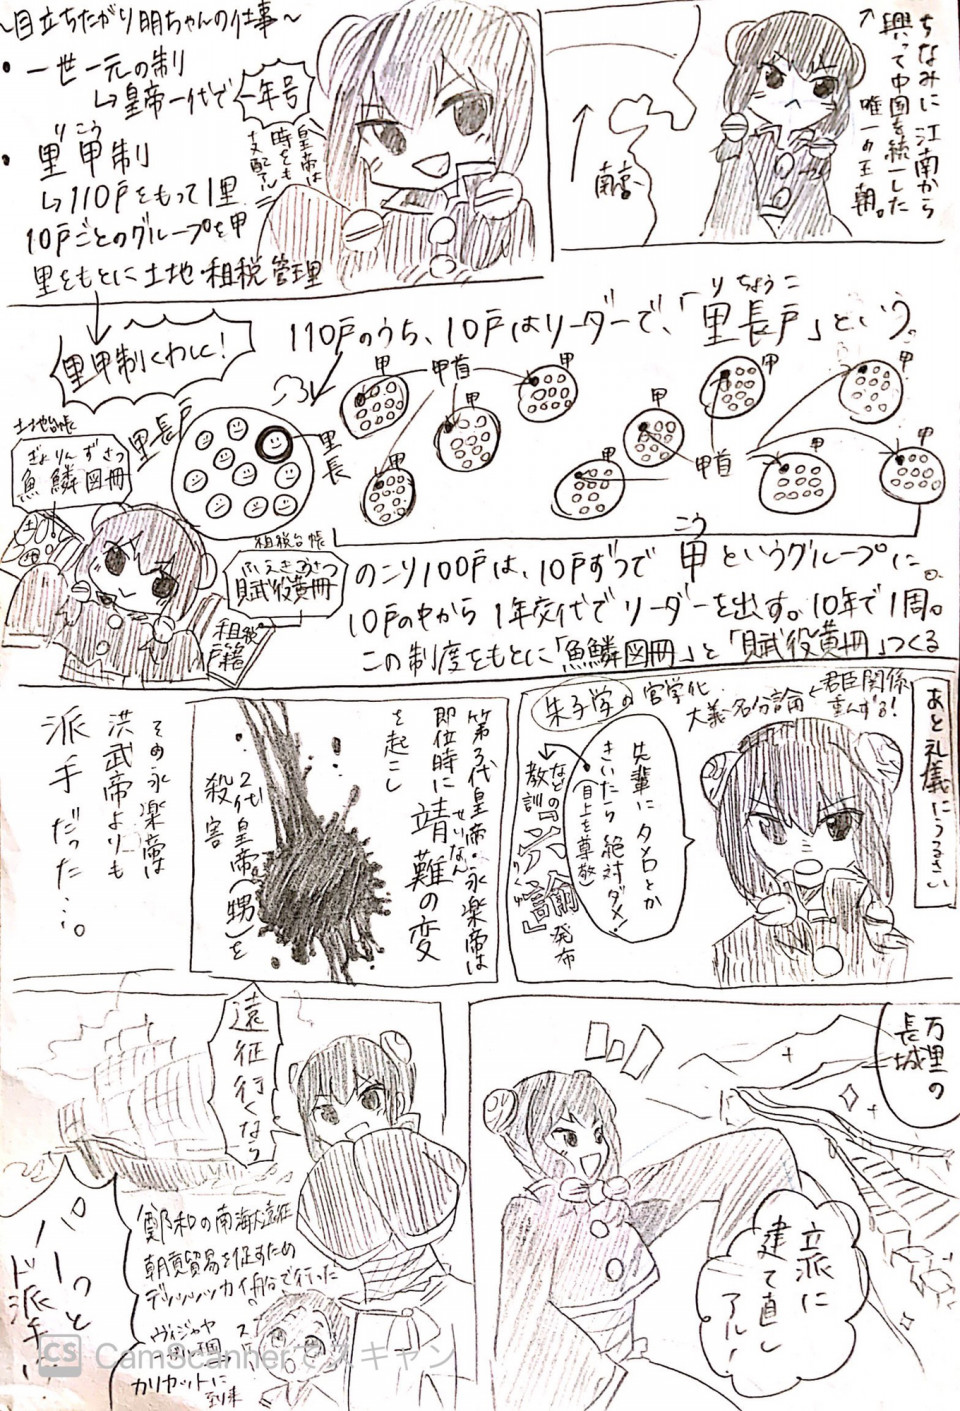 ちなみに江南から
興って中国を統一した
唯一の王朝。
南京
～目立ちたがり明ちゃんの仕事～
・一世一元の制
↳皇帝一代で
一年号
皇帝は
時をも
支配アル
りこう
・里甲制
↳110戸をもって1里
10戸ごとのグループを甲
里をもとに土地・租税管理
里甲制くわしく!
110戸のうち、10戸はリーダーで、「里長戸」という。
りちょうこ
里長戸
里長
甲
甲首
甲
甲
甲
甲
甲
甲
甲首
甲
甲
甲
土地台帳
ぎょりんずさつ
魚鱗図冊
租税台帳
ふえきこうさつ
賦役黄冊
租税
戸籍
こう
のこり100戸は、10戸ずつで甲というグループに。
10戸の中から1年交代でリーダーを出す。10年で1周。
この制度をもとに「魚鱗図冊」と「賦役黄冊」つくる
あと礼儀にうるさい
朱子学の官学化
大義名分論←君臣関係
重んずる!
先輩にタメ口とか
きいたら絶対ダメ!
(目上を尊敬)
などの
教訓『六諭』発布
りくゆ
第3代皇帝・永楽帝は
即位時に靖難の変
せいなん
を起こし
2代皇帝(甥)を
殺害
その永楽帝は
洪武帝よりも
派手だった…。
万里の
長城
立派に
建て直し
アル!
遠征行くなり
パーっと
ド派手に
鄭和の南海大遠征
朝貢貿易を促すため
デッッッッカイ船で行った
ヴィジャヤ
カリカットに
到来
CS CamScannerでスキャン